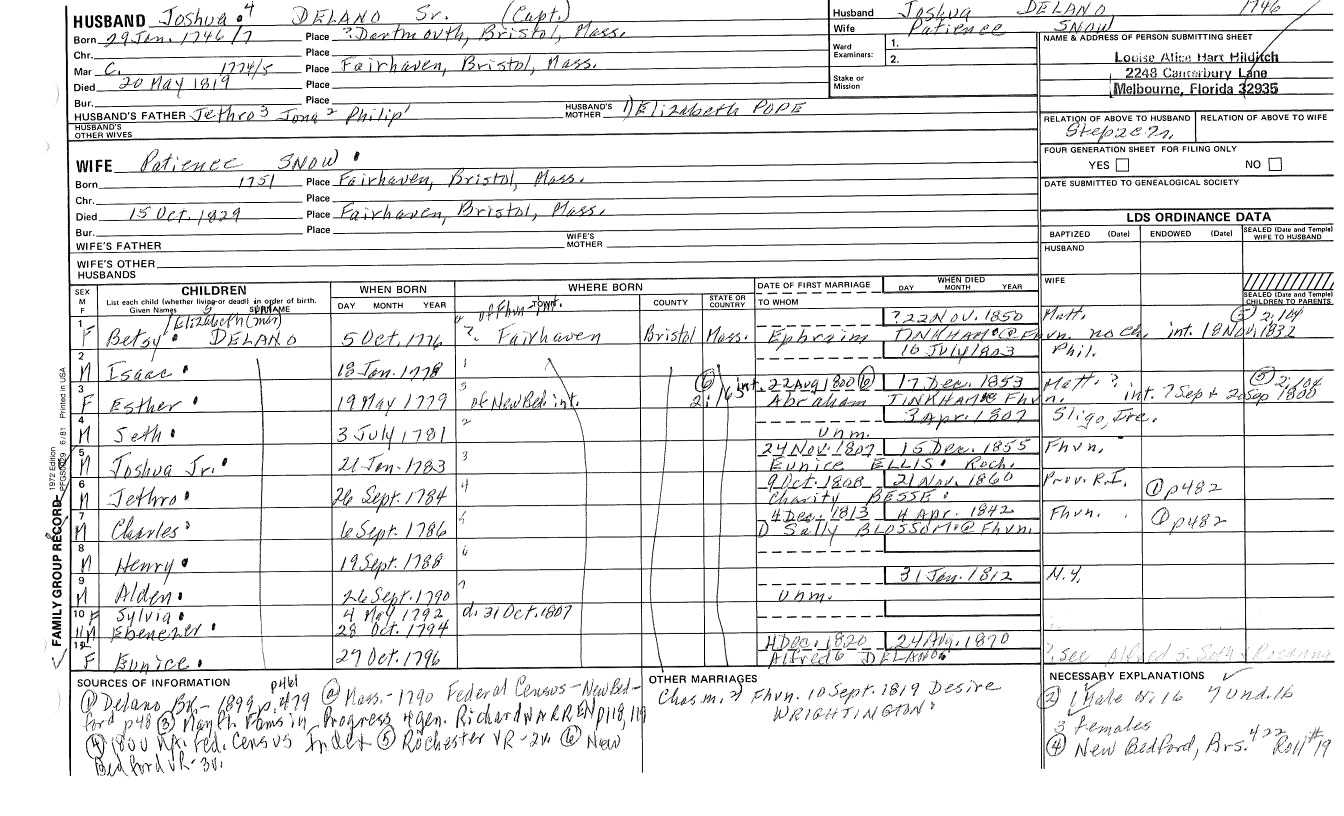 HUSBAND Joshua 4 DELANO Sr. (Capt.)
Born 29 Jan. 1746/7 Place ? Dartmouth, Bristol, Mass.
Chr. Place
Mar C. 1774/5 Place Fairhaven, Bristol, Mass.
Died 20 May 1819 Place
Bur. Place
HUSBAND'S FATHER Jethro 3 Jona 2 Philip 1 HUSBAND'S MOTHER 1) Elizabeth POPE
HUSBAND'S OTHER WIVES
WIFE Patience SNOW
Born 1751 Place Fairhaven, Bristol, Mass.
Chr. Place
Died 15 Oct. 1829 Place Fairhaven, Bristol, Mass.
Bur. Place
WIFE'S FATHER WIFE'S MOTHER
WIFE'S OTHER HUSBANDS
Husband Joshua DELANO 1746
Wife Patience SNOW
Ward Examiners: 1.
2.
Stake or Mission
NAME & ADDRESS OF PERSON SUBMITTING SHEET
Louise Alice Hart Hilditch
2248 Canterbury Lane
Melbourne, Florida 32935
RELATION OF ABOVE TO HUSBAND RELATION OF ABOVE TO WIFE
FOUR GENERATION SHEET FOR FILING ONLY
YES NO
DATE SUBMITTED TO GENEALOGICAL SOCIETY
LDS ORDINANCE DATA
BAPTIZED (Date) ENDOWED (Date) SEALED (Date and Temple) WIFE TO HUSBAND
HUSBAND
WIFE
SEALED (Date and Temple) CHILDREN TO PARENTS
SEX M F CHILDREN
List each child (whether living or dead) in order of birth.
Given Names SURNAME
WHEN BORN
DAY MONTH YEAR
WHERE BORN
TOWN COUNTY STATE OR COUNTRY
DATE OF FIRST MARRIAGE
TO WHOM
WHEN DIED
DAY MONTH YEAR
1 F Betsy DELANO /Elizabeth (mar) 5 Oct. 1776 ? Fairhaven of Fhvn int. Bristol Mass. ? 22 Nov. 1850 Matt. 5 2:104
Ephraim TINKHAM @ Fhvn. no ch. int. 18 Nov. 1832
2 M Isaac 18 Jan. 1778 16 July 1803 Phil.
3 F Esther 19 May 1779 of New Bed int. 6 2:165 int. 22 Aug 1800 6 17 Dec. 1853 Matt. ? 5 2:104
Abraham TINKHAM @ Fhvn. int. 7 Sep & 20 Sep 1800
4 M Seth 3 July 1781 unm. 3 Apr. 1807 Sligo, Ire.
5 M Joshua Jr. 21 Jan. 1783 24 Nov. 1807 15 Dec. 1855 Fhvn.
Eunice ELLIS Roch.
6 M Jethro 26 Sept. 1784 9 Oct. 1808 21 Nov. 1860 Prov. R.I. 1 p482
Charity BESSE
7 M Charles 6 Sept. 1786 4 Dec. 1813 4 Apr. 1842 Fhvn. 1 p482
Sally BLOSSOM @ Fhvn.
8 M Henry 19 Sept. 1788
9 M Alden 26 Sept. 1790 unm. 31 Jan. 1812 N.Y.
10 F Sylvia 4 May 1792 d. 31 Oct. 1807
11 M Ebenezer 28 Oct. 1794
12 F Eunice 27 Oct. 1796 4 Dec. 1820 24 Aug. 1870
Alfred 6 DELANO ? See Alfred
SOURCES OF INFORMATION
1 Delano Bk.- 1899 p. 479 p461 2 Mass.- 1790 Federal Census - New Bed-
ford p48 3 Mayfl. Fams in Progress 4 gen. Richard WARREN p118, 119
4 1800 Ma. Fed. Census Index 5 Rochester VR - 2v. 6 New
Bedford VR - 3v.
OTHER MARRIAGES
Chas m. 2) Fhvn. 10 Sept. 1819 Desire
WRIGHTINGTON
NECESSARY EXPLANATIONS
2 1 Male ov. 16 7 und. 16
3 Females
4 New Bedford, Brs. 422 Roll #19
FAMILY GROUP RECORD
1972 Edition
6/81 Printed in USA